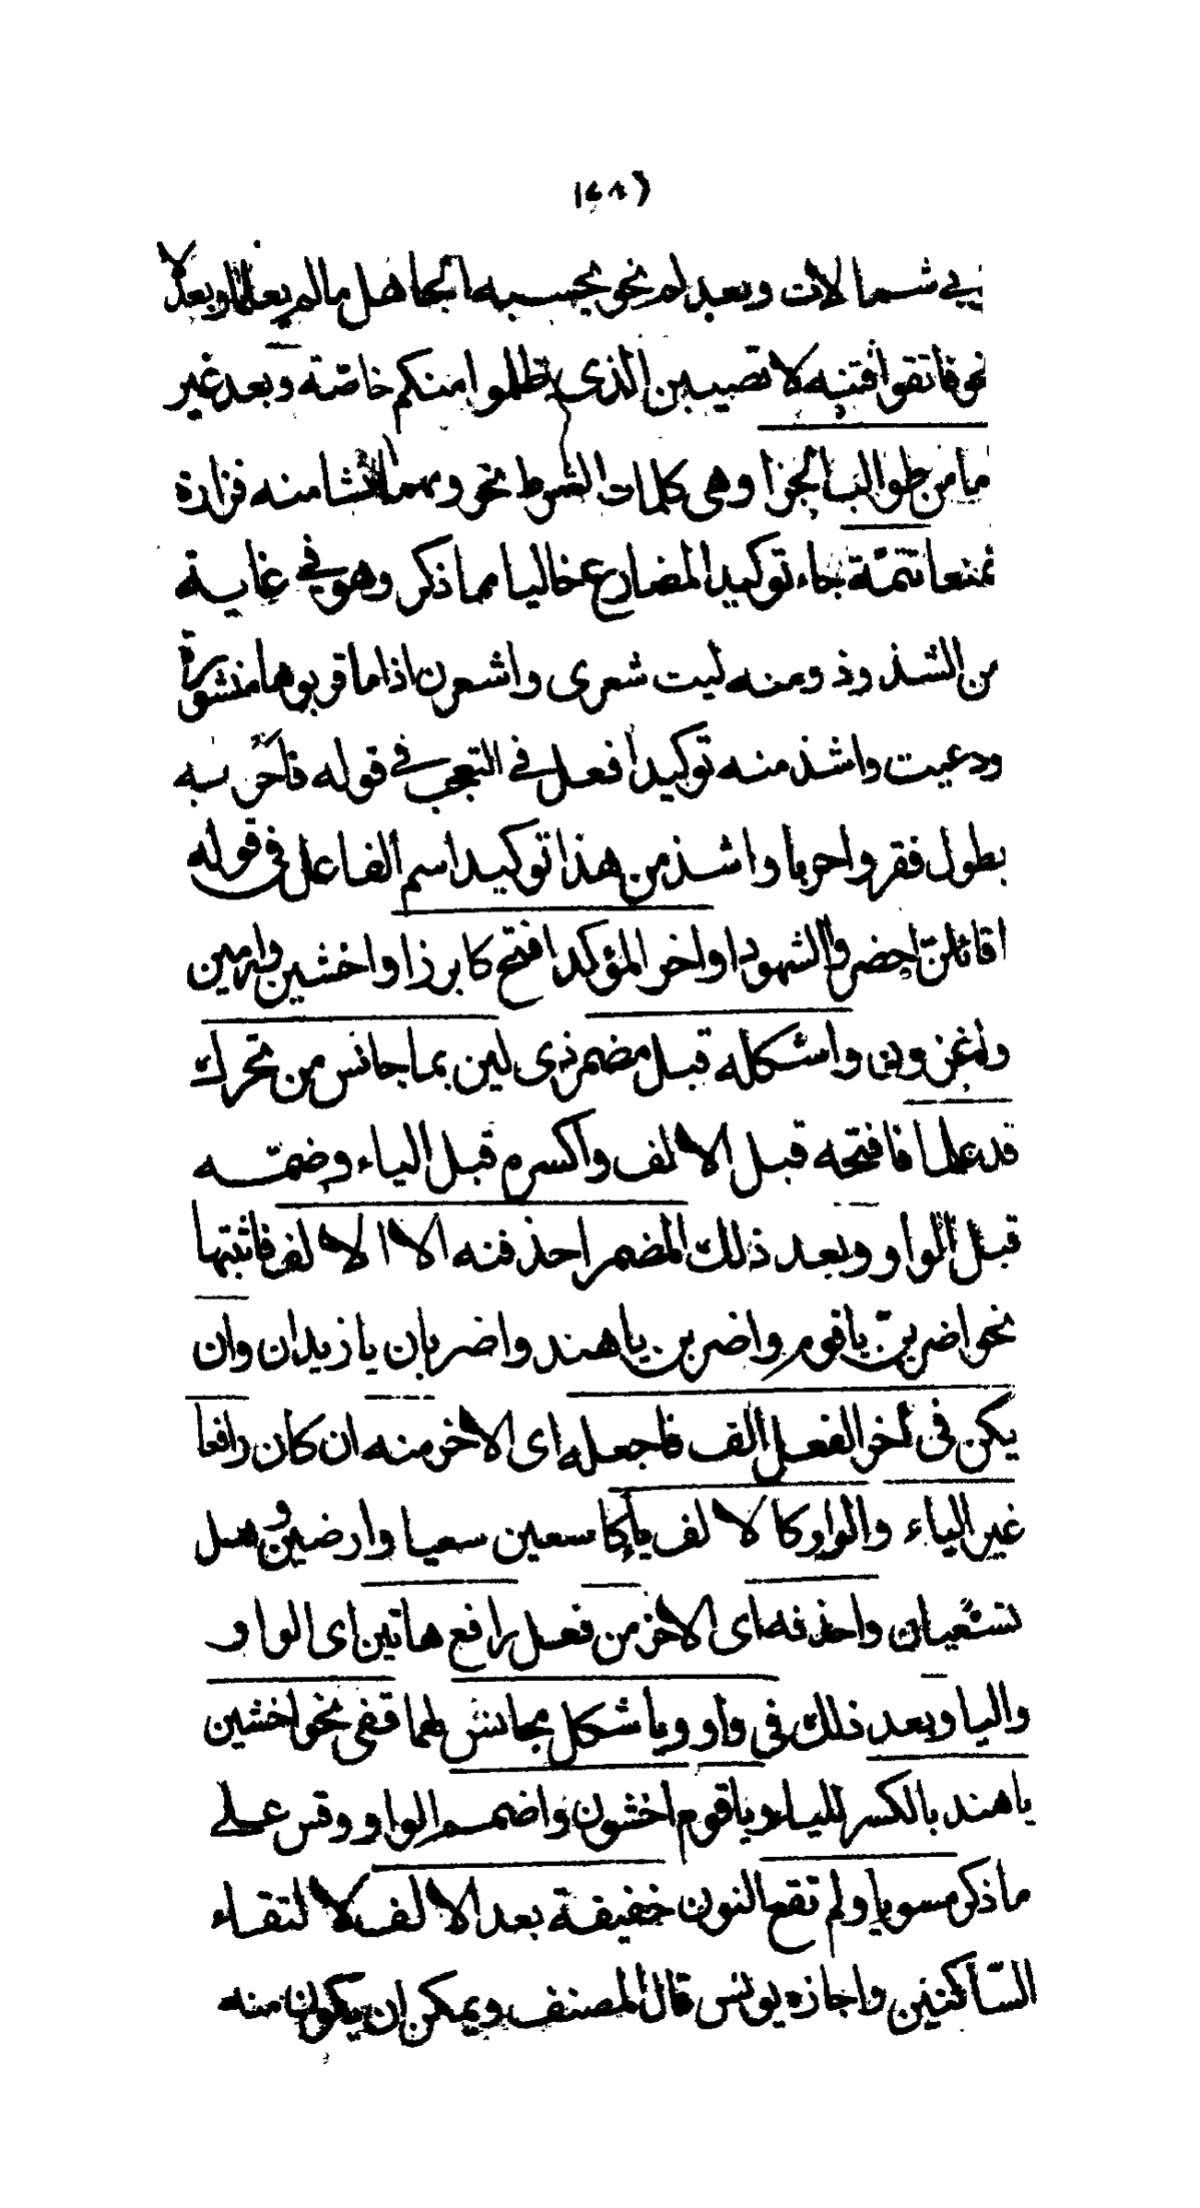 (١٤٨)
بي شمالات وبعد لم نحو يحسبه الجاهل مالم يعلما وبعد لا
نحو فاتقوا فتنه لا تصيبن الذى ظلموا منكم خاصّة وبعد غير
ما من طوالب الجزا وهى كلمات الشرط نحو ومهما تشا منه فزارة
تمنعا تتمّة جاء توكيد المضارع خاليا مما ذكر وهو في غاية
من الشذوذ ومنه ليت شعرى واشعرن اذا ما قربوها منشورة
ودعيت واشذ منه توكيد افعل في التعجب في قوله فاحر به
بطول فقر واحريا واشذ من هذا توكيد اسم الفاعل في قوله
اقائلنّ احضروا الشهودا واخر المؤكد افتح كابرزا واخشين وارمين
واغزون واشكله قبل مضمر ذى لين بما جانس من تحرك
قد علما فافتحه قبل الالف واكسره قبل الياء وضمّه
قبل الواو وبعد ذلك المضمر احذفنه الا الالف فاثبتها
نحو اضربنّ يا قوم واضربن يا هند واضربان يا زيدان وان
يكن في اخر الفعل الف فاجعله اى الاخر منه ان كان رافعا
غير الياء والواو كالالف ياء كاسعين سعيا وارضين وهل
تسعيان واحذفه اى الاخر من فعل رافع هاتين اى الواو
واليا وبعد ذلك في واو ويا شكل مجانس لهما قفى نحو اخشين
يا هند بالكسر للياء ويا قوم اخشون واضمم الواو وقس على
ما ذكر مسويا ولم تقع النون خفيفة بعد الالف لالتقاء
السّاكنين واجازه يونس قال المصنف ويمكن ان يكون منه